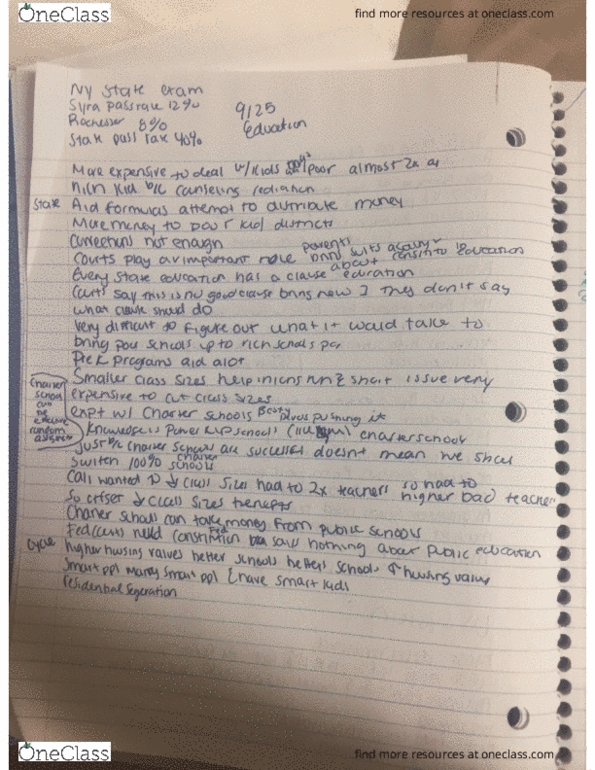 OneClass
find more resources at oneclass.com
NY State exam
Syra pass rate 12%
Rochester 8%
State pass rate 40%
9/25
Education
More expensive to deal w/ kids poor almost 2x as
rich kid b/c counseling
State Aid formulas attempt to distribute money
More money to poor kid districts
not enough
Courts play an important role parents bring suits about education
Every state education has a clause education
Courts say this is no good clause bring new 1 they don't say
what clause should do
Very difficult to figure out what it would take to
bring poor schools up to rich schools
Pre K programs aid alot
Smaller class sizes help in long run & short issue very
expensive to cut class sizes
expt w/ Charter schools Betsy Divos pushing it
Charter schools can be random
Knowledge is Power KIP schools charter school
Just b/c charter schools are successful doesn't mean we should
switch 100% charter schools
Cali wanted to ↓ class sizes had to 2x teachers so had to
higher bad teacher
so offset ↓ class sizes benefits
Charter schools can take money from public schools
Fed says nothing about public education
Cycle higher housing values better schools better schools ↑ housing value
Smart ppl marry smart ppl & have smart kids
residential segeration
OneClass
find more resources at oneclass.com